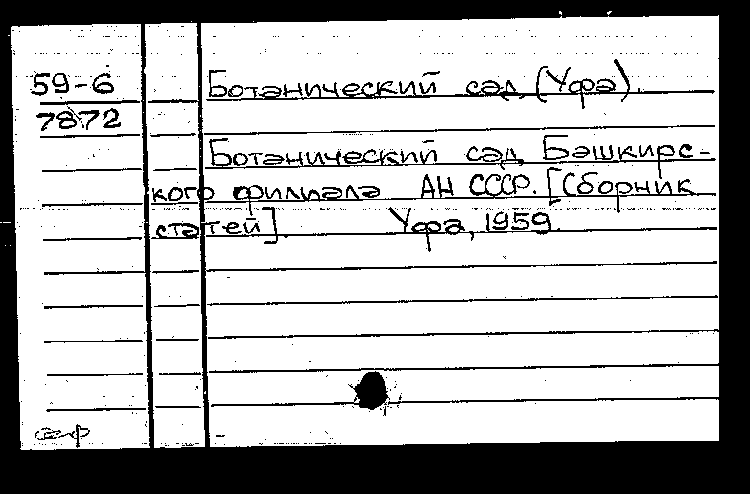 59-6 Ботанический сад (Уфа).
7872
Ботанический сад Башкирс-
кого филиала АН СССР. [Сборник
статей]. Уфа, 1959.